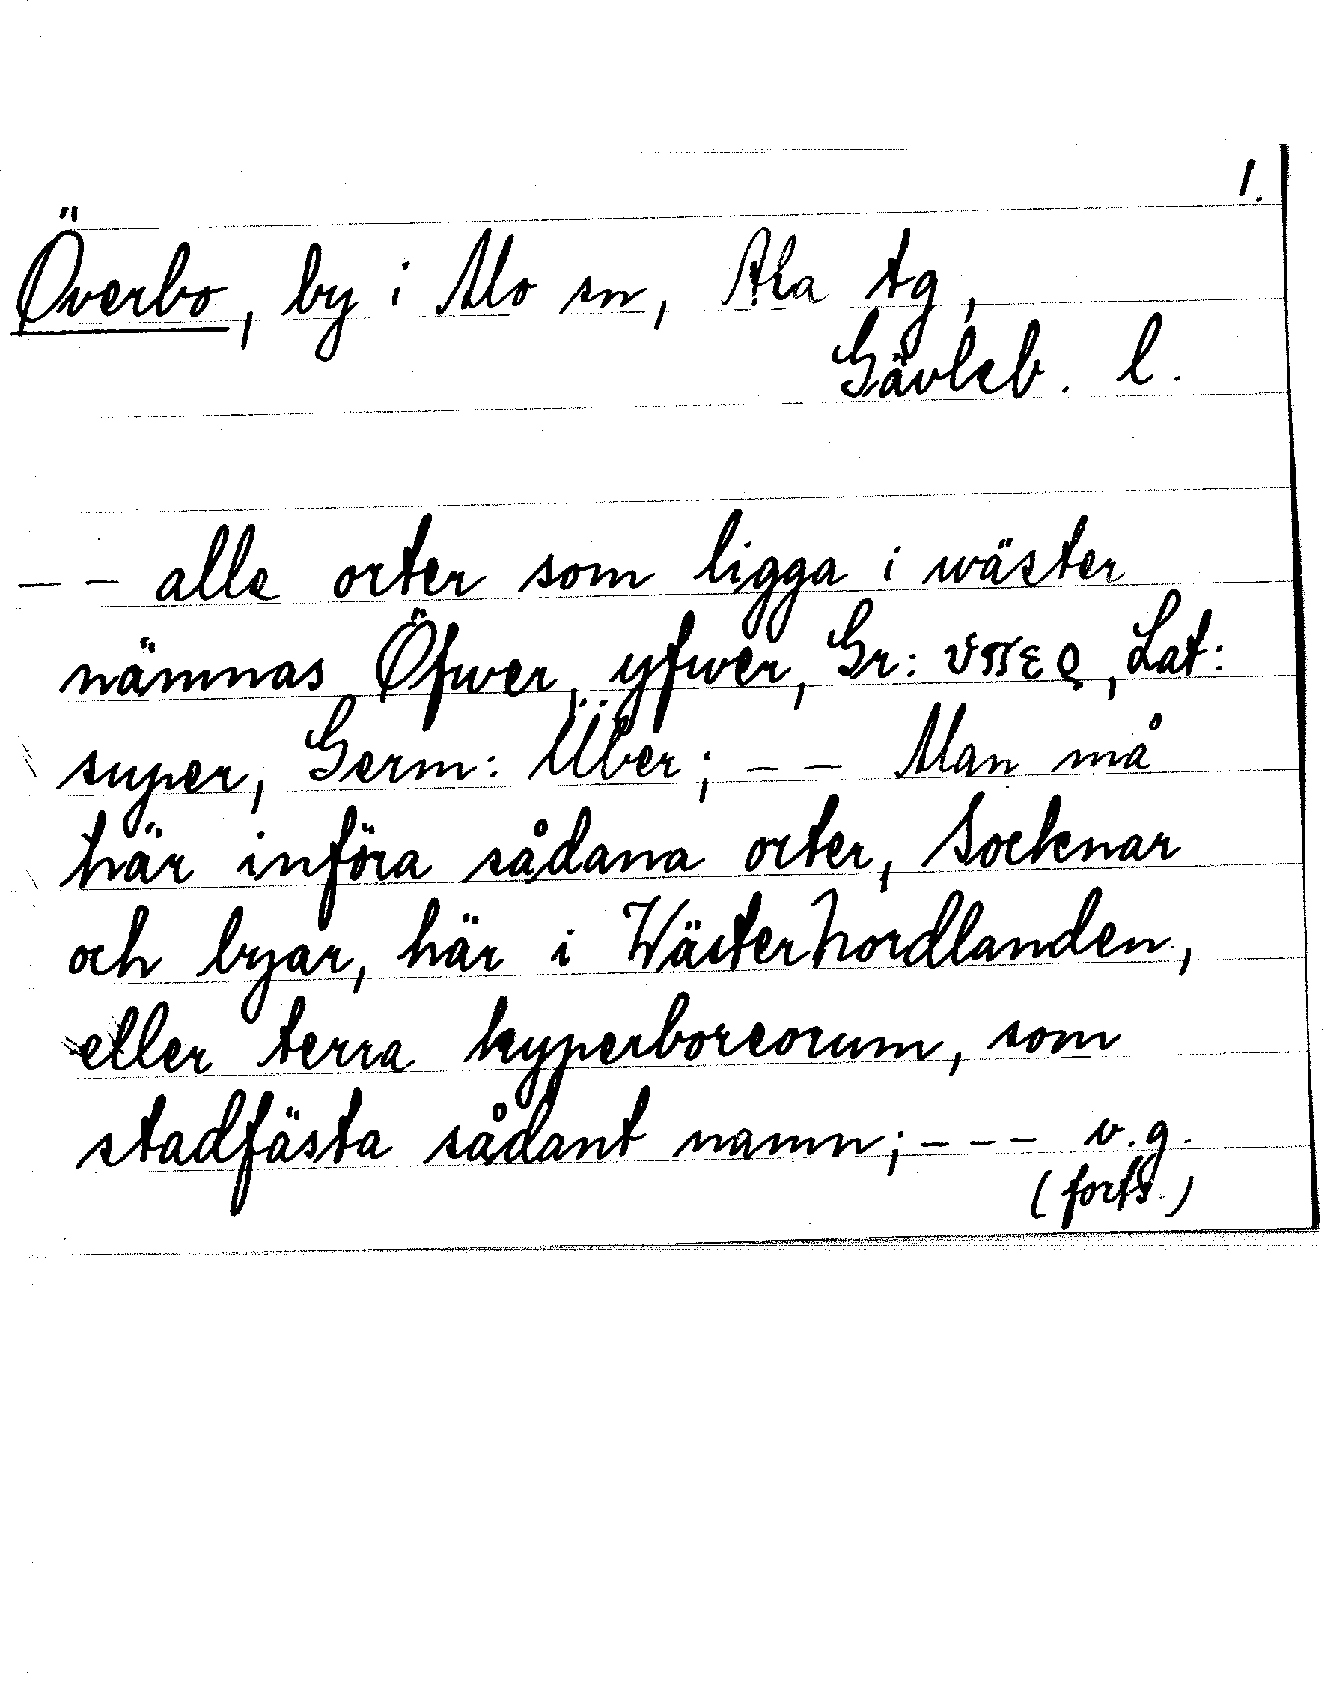 1.
Överbo, by i Mo sn, Ala tg,
Gävleb. l.
-- alle orter som ligga i wäster
nämnas Öfwer, yfwer, Gr: ὑπερ, Lat:
super, Germ: Über; -- Man må
här införa sådana orter, Socknar
och byar, här i Wästerhordlanden,
eller terra hyperboreorum, som
stadfästa sådant namn; --- v.g.
(forts.)